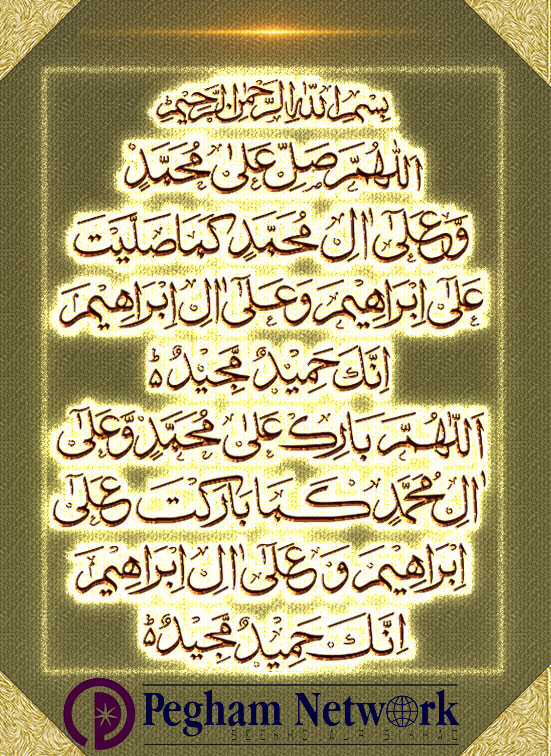 بِسْمِ اللّٰهِ الرَّحْمٰنِ الرَّحِيْمِ
اَللّٰهُمَّ صَلِّ عَلٰى مُحَمَّدٍ
وَّعَلٰٓى اٰلِ مُحَمَّدٍ كَمَا صَلَّيْتَ
عَلٰٓى اِبْرَاهِيْمَ وَعَلٰٓى اٰلِ اِبْرَاهِيْمَ
اِنَّكَ حَمِيْدٌ مَّجِيْدٌ ؕ
اَللّٰهُمَّ بَارِكْ عَلٰى مُحَمَّدٍ وَّعَلٰٓى
اٰلِ مُحَمَّدٍ كَمَا بَارَكْتَ عَلٰٓى
اِبْرَاهِيْمَ وَ عَلٰٓى اٰلِ اِبْرَاهِيْمَ
اِنَّكَ حَمِيْدٌ مَّجِيْدٌ ؕ
Pegham Network
SEEKHO AUR SIKHAO